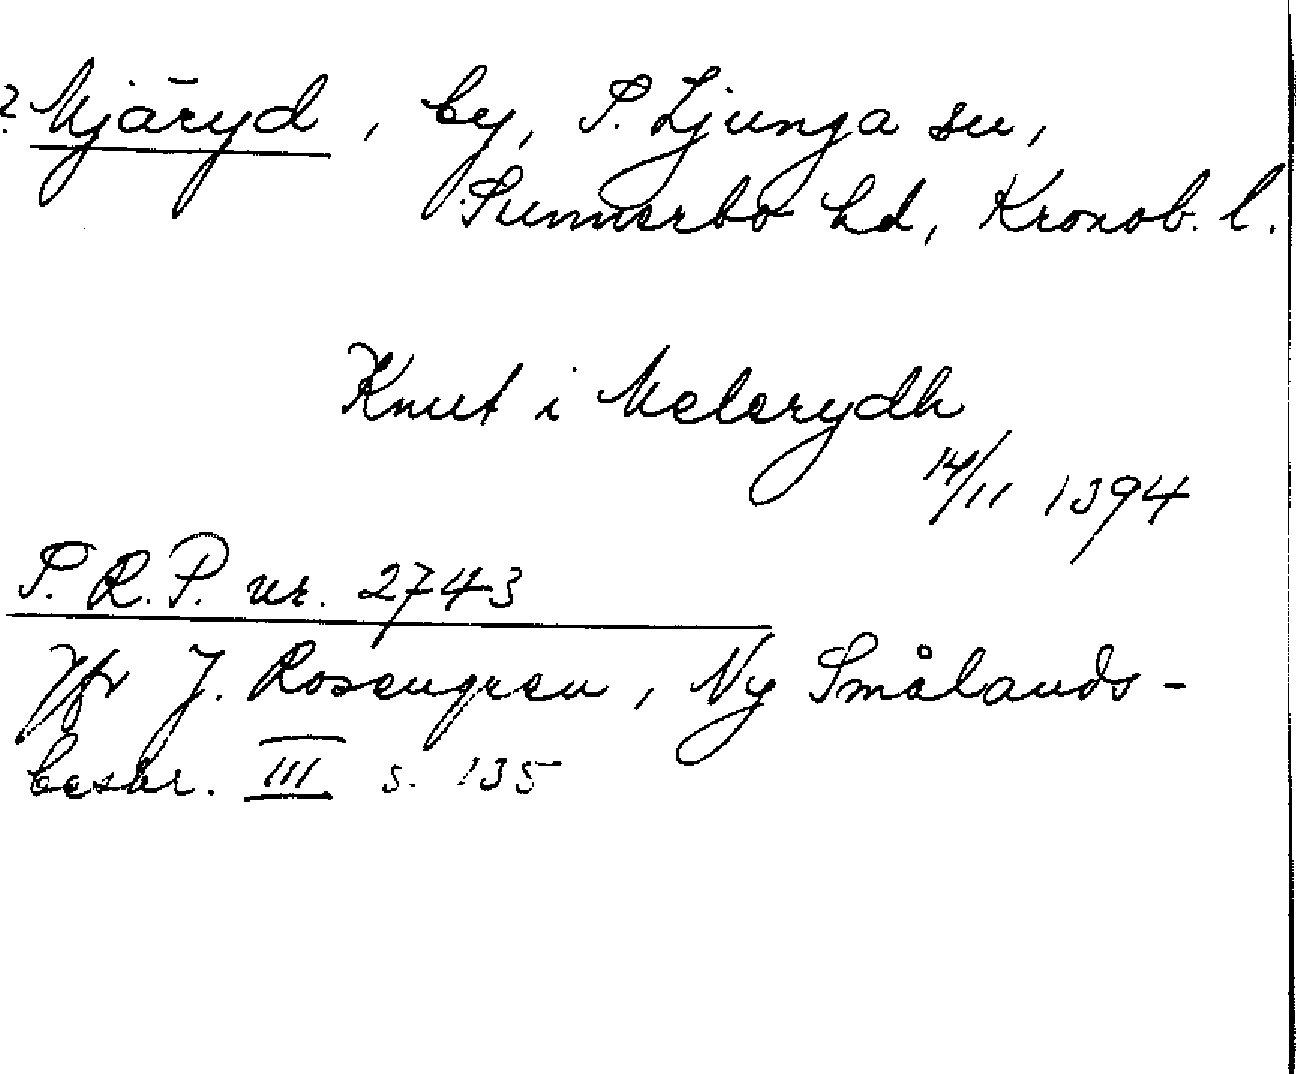 ? Mjäryd, by, S. Ljunga sn,
Sunnerbo hd, Kronob. l.
Knut i Melerydh
14/11 1394
S. R. P. nr. 2743
Jfr J. Rosengren, Ny Smålands-
beskr. III s. 135